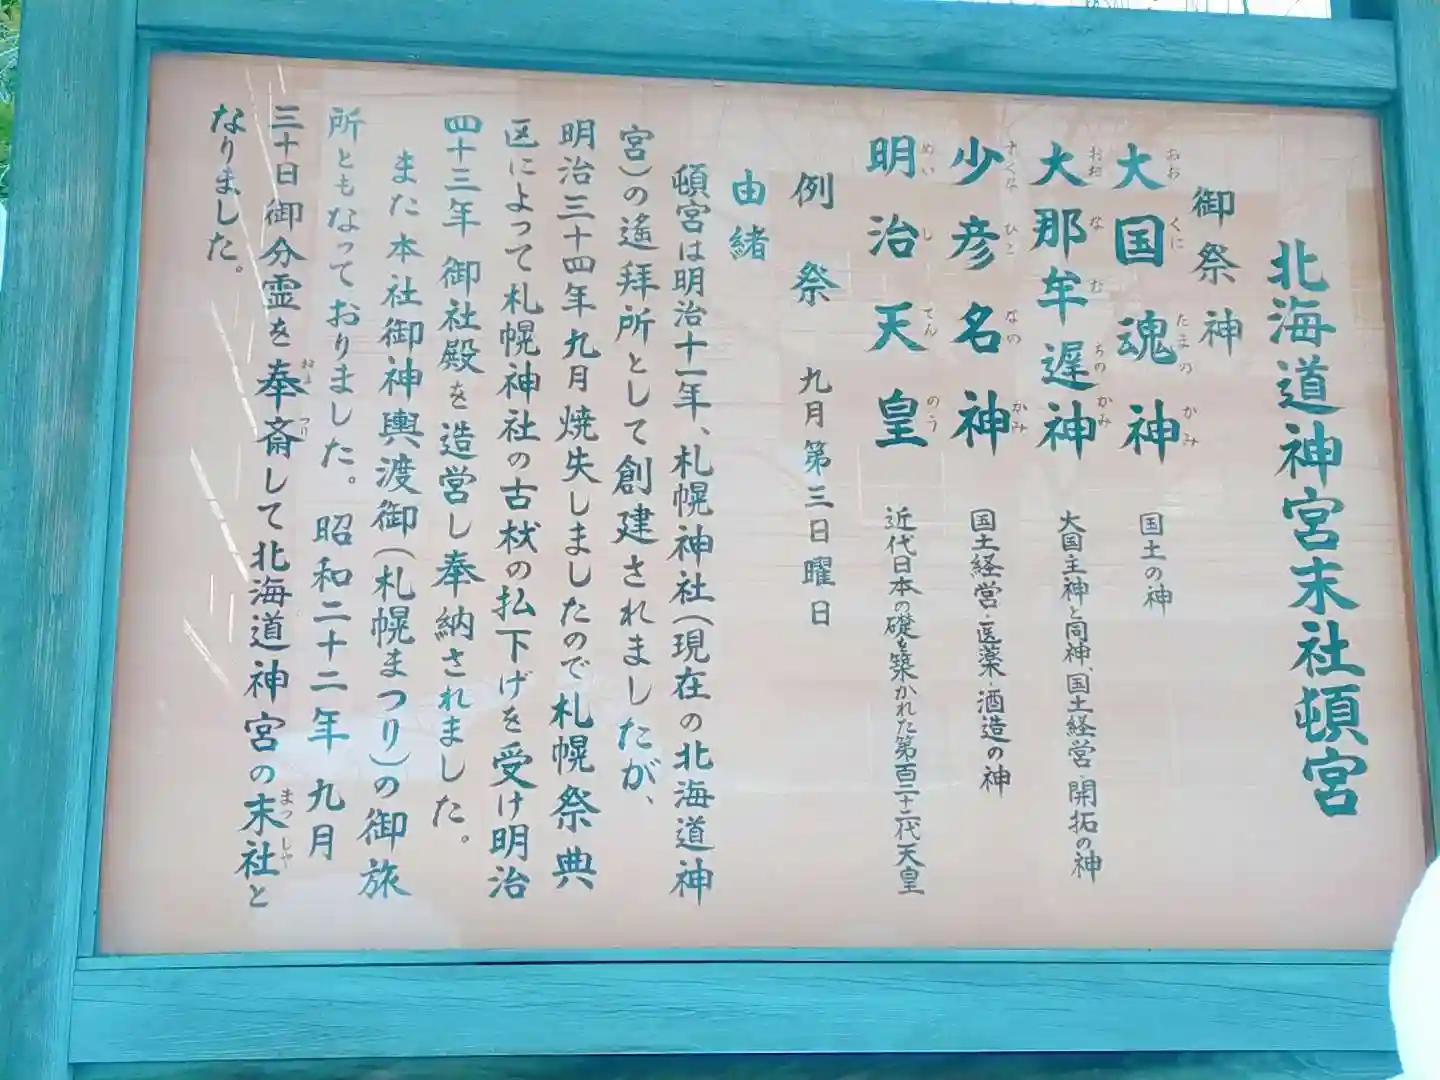 北海道神宮末社頓宮
御祭神
大国魂神 国土の神
おお くに たまの かみ
大那牟遅神 大国主神と同神、国土経営・開拓の神
おお な む ちの かみ
少彦名神 国土経営・医薬・酒造の神
すくな ひこ なの かみ
明治天皇 近代日本の礎を築かれた第百二十二代天皇
めい じ てん のう
例祭 九月第三日曜日
由緒
頓宮は明治十一年、札幌神社(現在の北海道神
宮)の遙拝所として創建されましたが、
明治三十四年九月焼失しましたので札幌祭典
区によって札幌神社の古材の払下げを受け明治
四十三年 御社殿を造営し奉納されました。
また本社御神輿渡御(札幌まつり)の御旅
所ともなっておりました。昭和二十二年九月
三十日御分霊を奉斎して北海道神宮の末社と
まつしや
なりました。